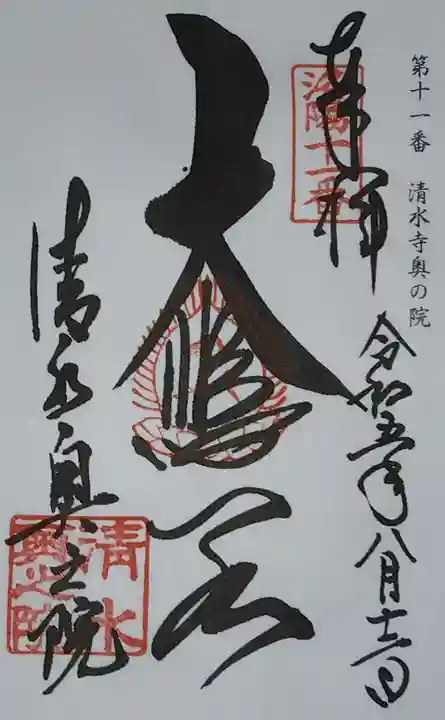 第十一番 清水寺奥の院
奉拝
洛陽十一番
令和五年八月十三日
大悲閣
清水奥之院
清水
奥之院